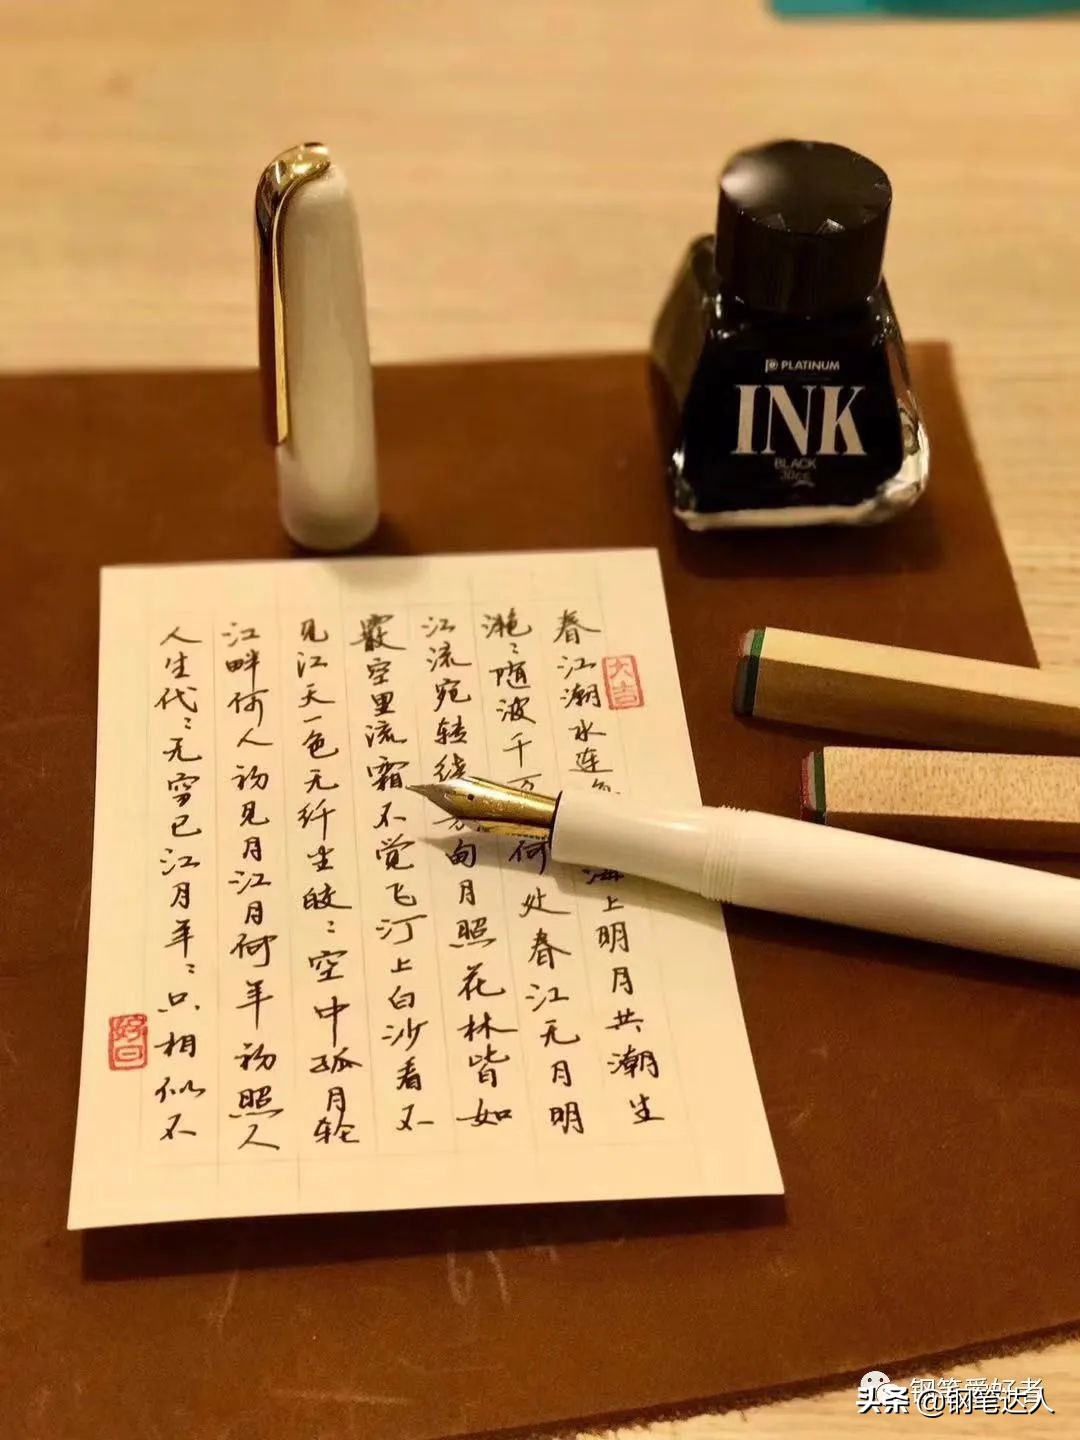 PLATINUM
INK
BLACK
30cc
大吉
春江潮水连海上明月共潮生
滟〻随波千万何处春江无月明
江流宛转绕芳甸月照花林皆如
霰空里流霜不觉飞汀上白沙看不
见江天一色无纤尘皎〻空中孤月轮
江畔何人初见月江月何年初照人
人生代〻无穷已江月年〻只相似不
好日
钢笔爱好者
头条 @钢笔达人